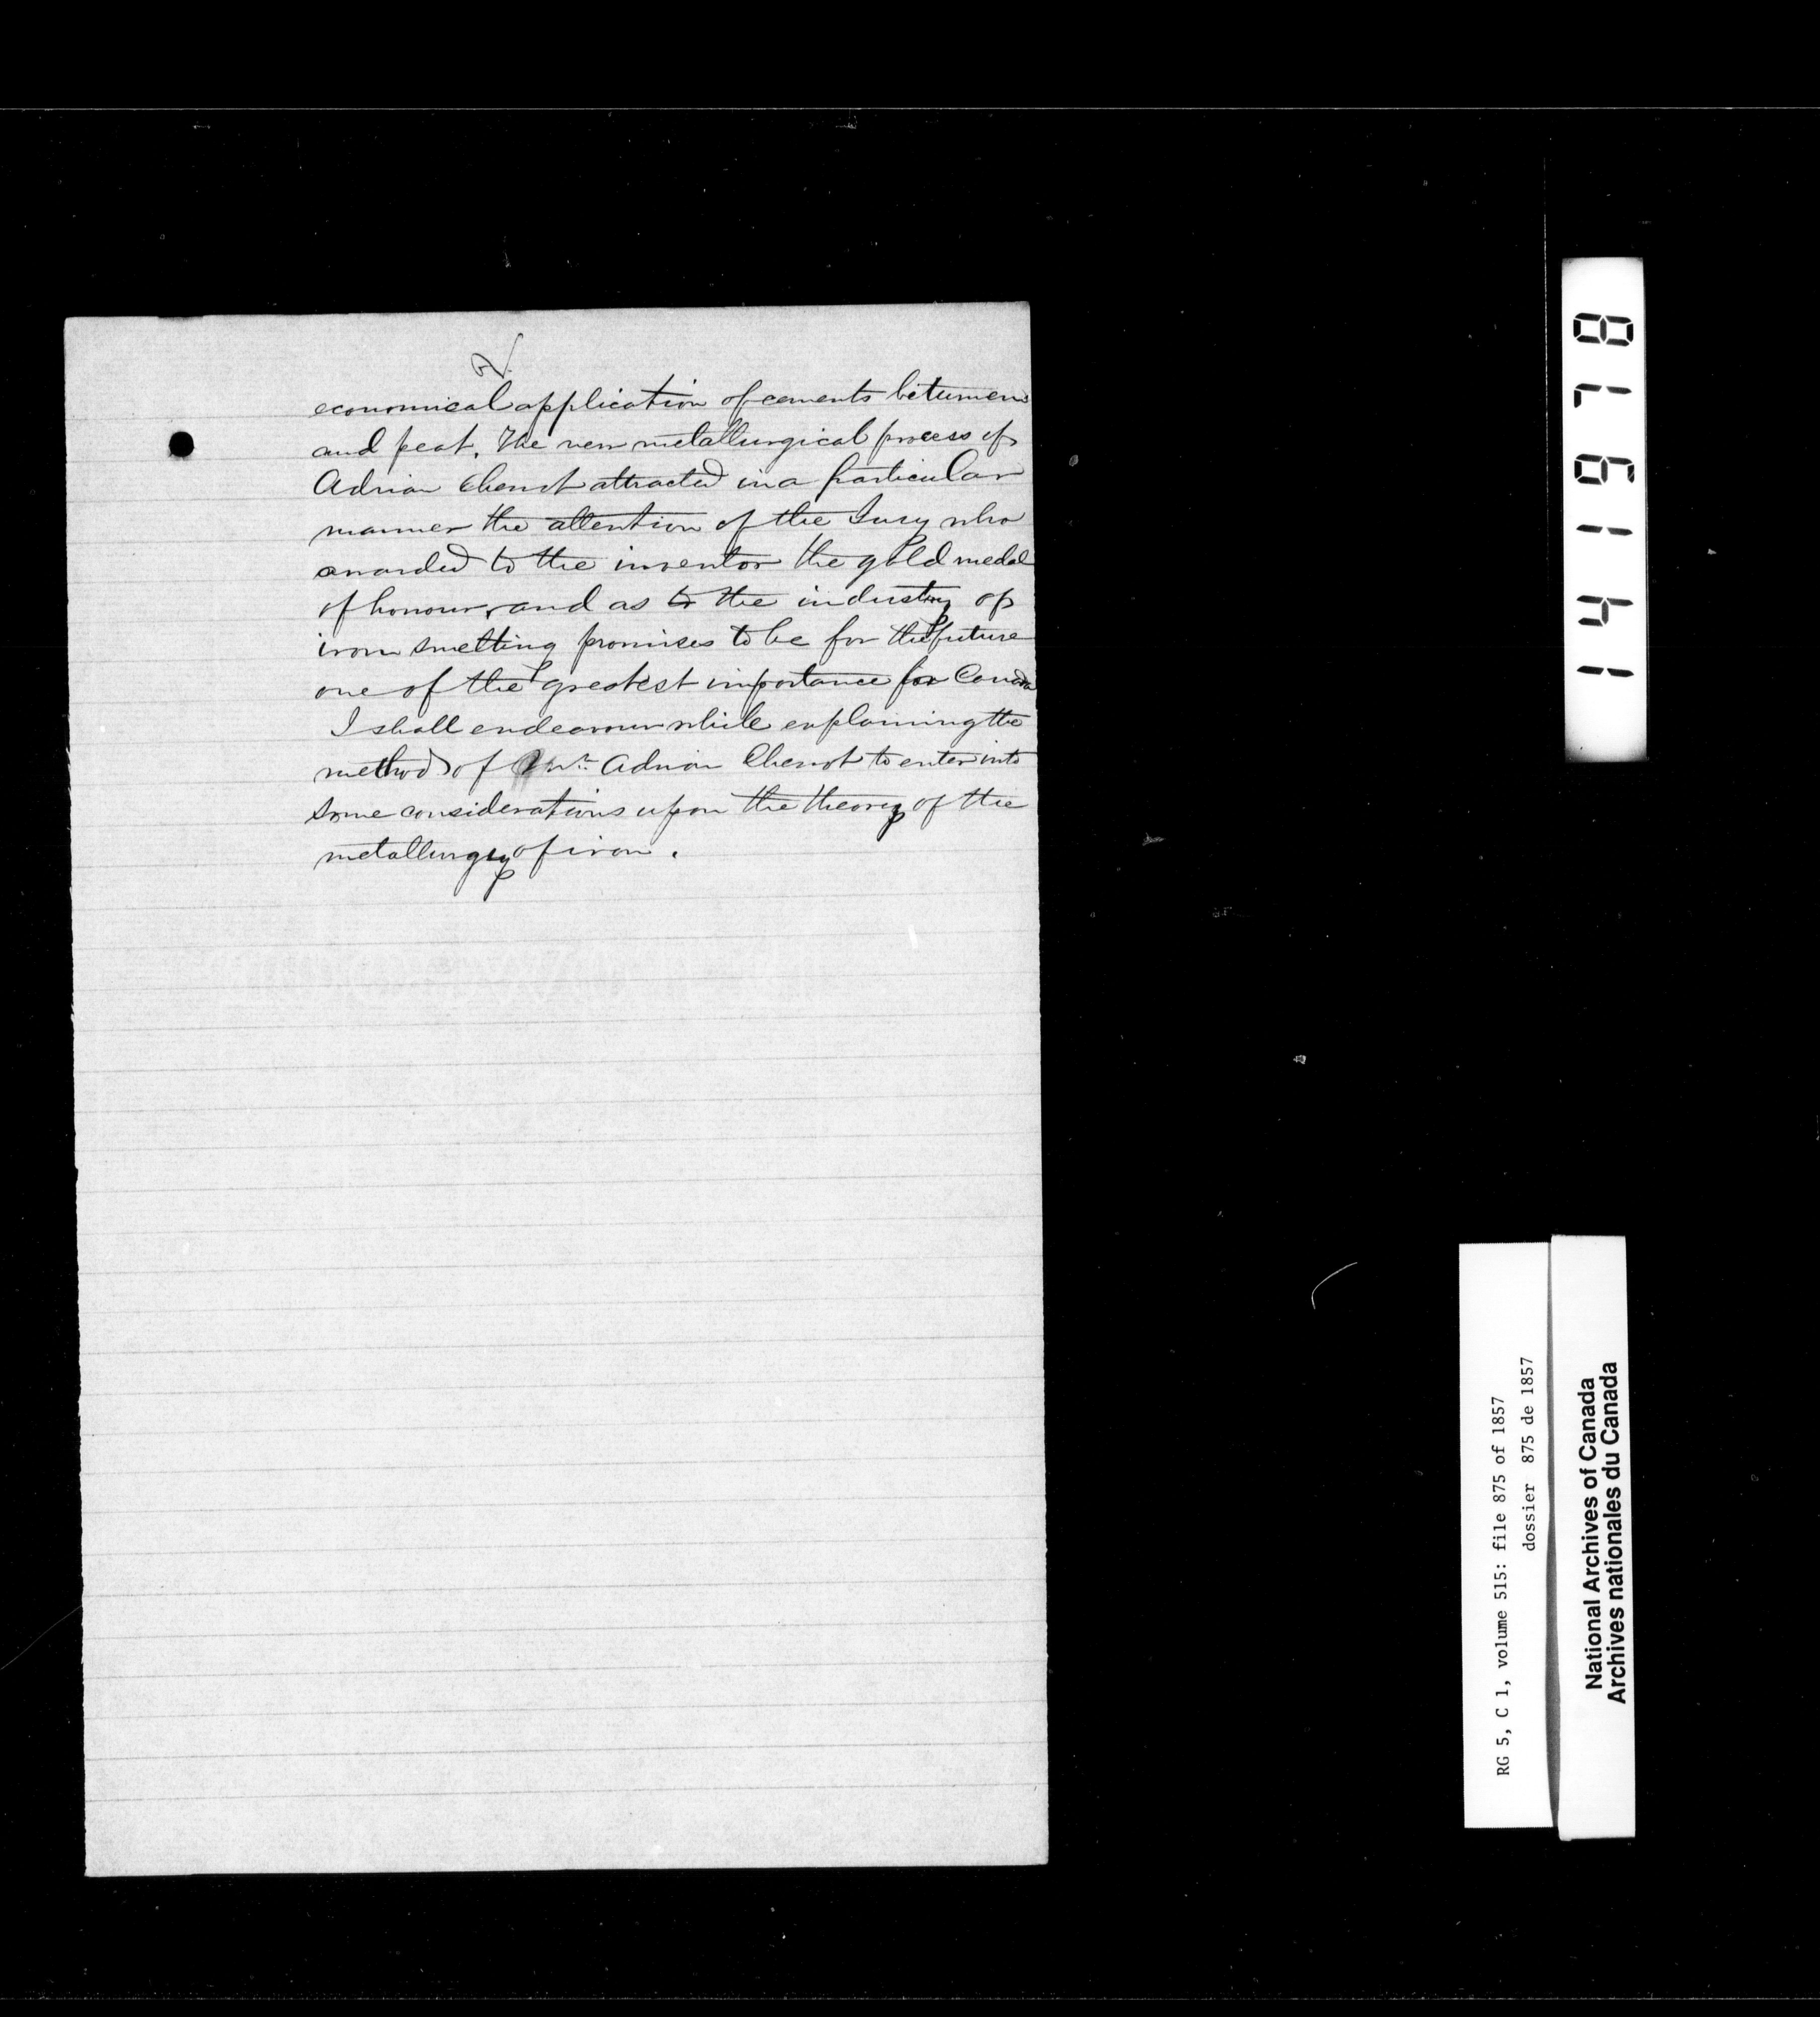 2/
economical application of cements bitumens
and peat. The new metallurgical process of
Adrian Chenot attracted in a particular
manner the attention of the Jury who
awarded to the inventor the gold medal
of honour, and as to the industry of
iron smelting promises to be for the future
one of the greatest importance for Canada
I shall endeavour while explaining the
method of Mr. Adrian Chenot to enter into
some considerations upon the theory of the
metallurgy of iron.
141918
RG 5, C 1, volume 515: file 875 of 1857
dossier 875 de 1857
National Archives of Canada
Archives nationales du Canada